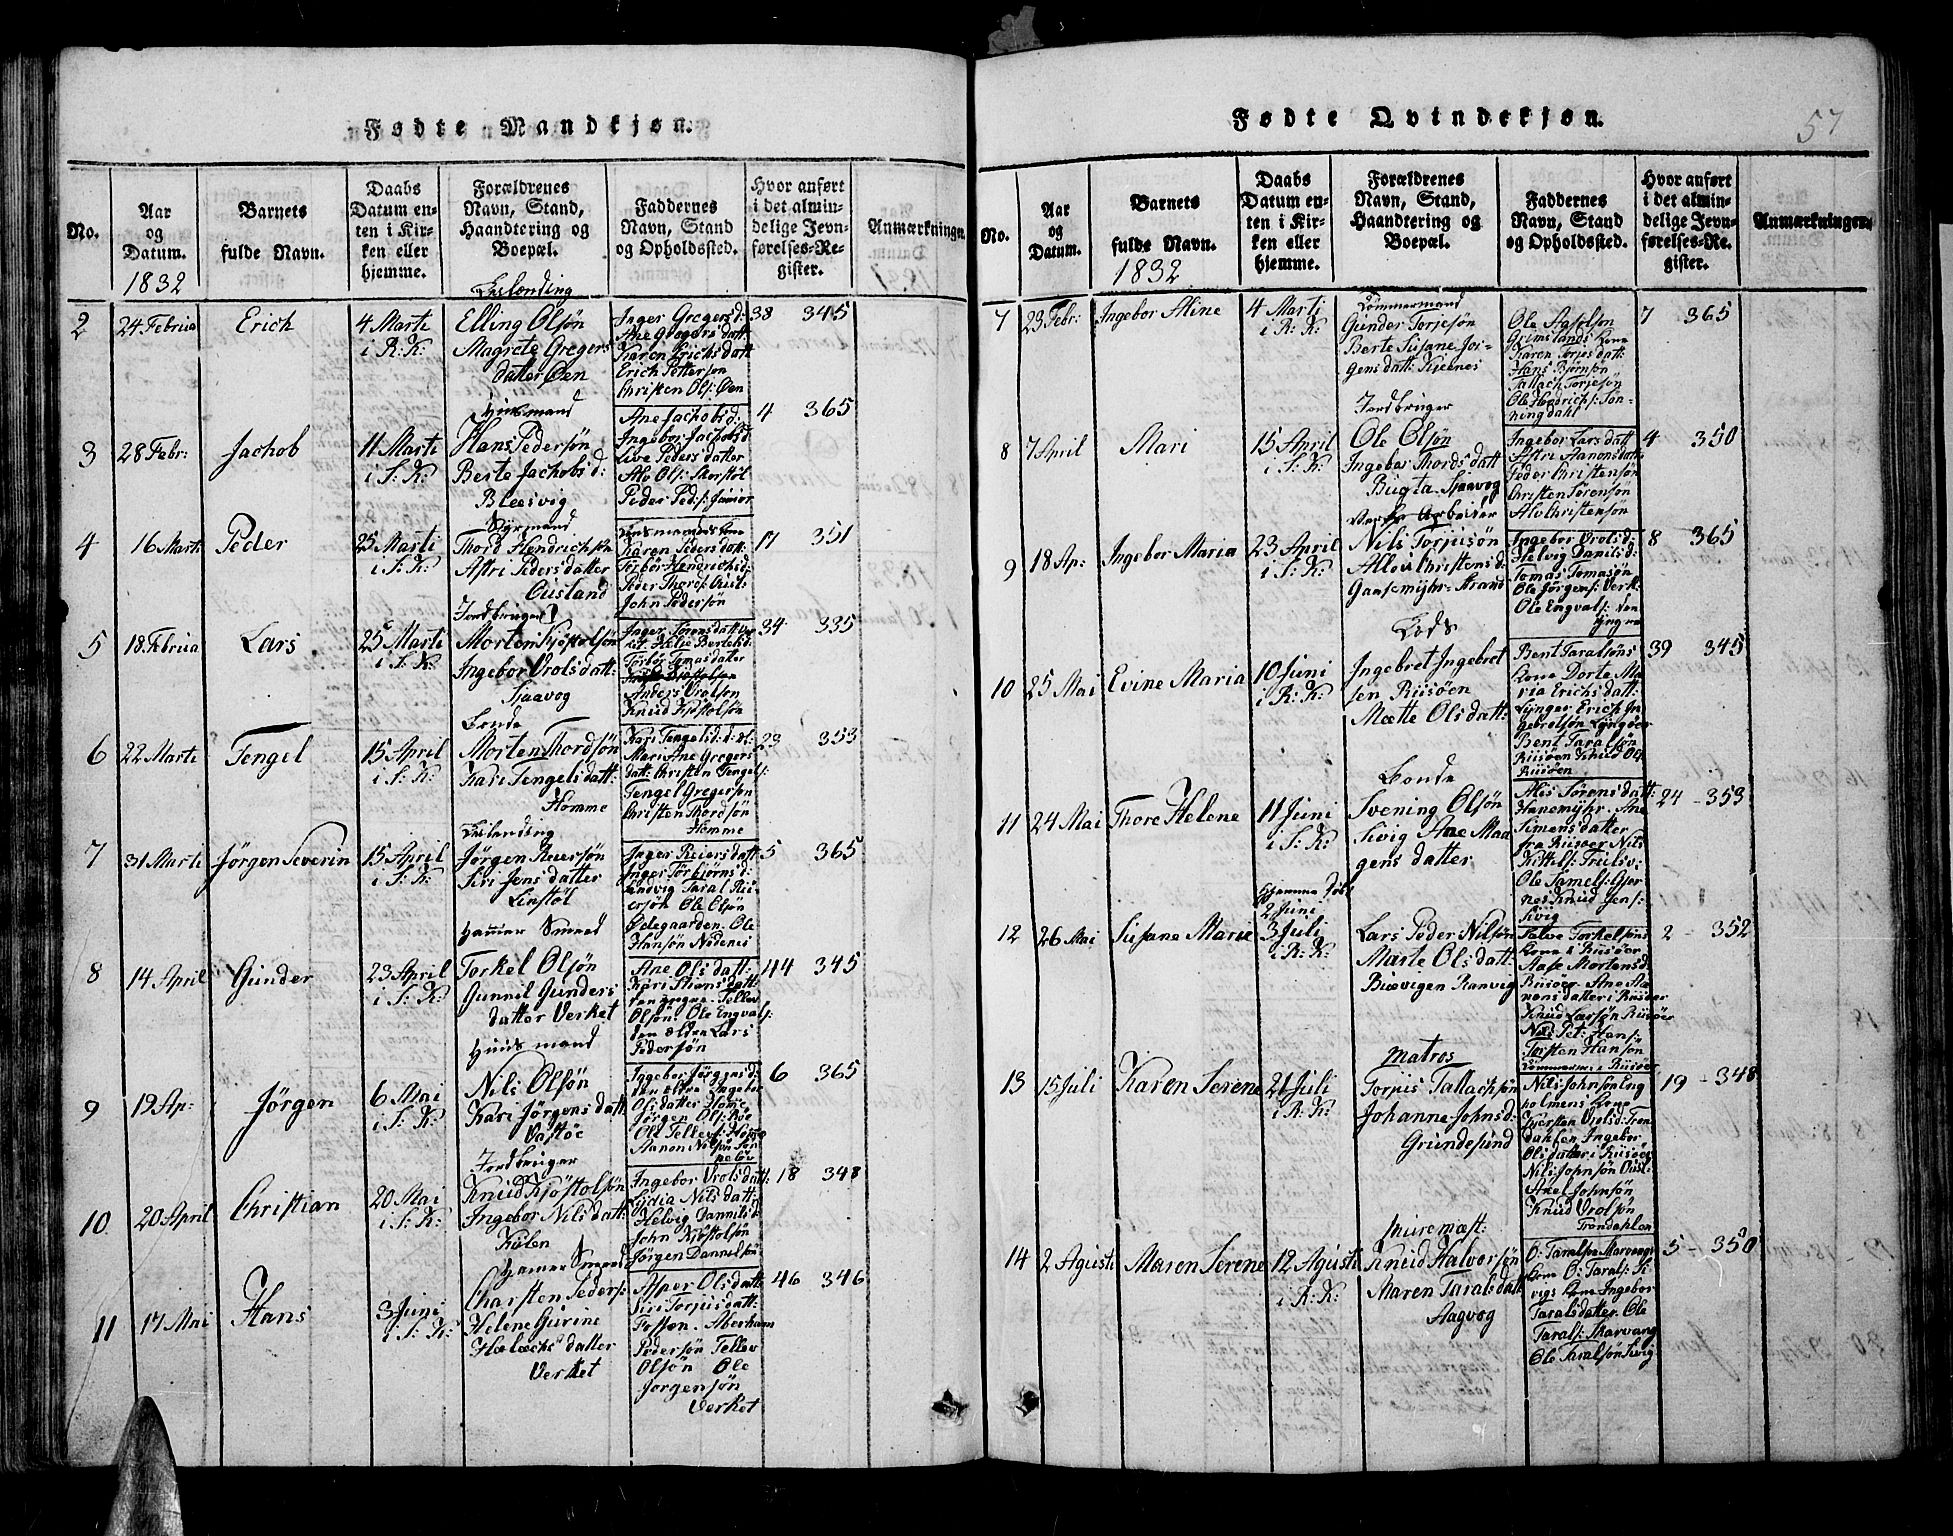 Fødte Mandkjøn.
No.
Aar og Datum.
1832
Barnets fulde Navn.
Daabs Datum enten i Kirken eller hjemme.
Forældrenes Navn, Stand, Haandtering og Boepæl.
Faddernes Navn, Stand og Opholdssted.
Hvor anført i det almindelige Jevnførelses-Register.
Anmærkninger.
2
24 Februa
Erich
4 Marti
i R: K:
Elling Olsøn
Magrete Gregers
datter Øen
Inger Gregersd:
Ane Gregers datt
Karen Erichs datt
Erich Pettersøn
Christen Ols: Øen
38 345
3
28 Febr:
Jachob
11 Marti
i S: K:
Huusmand
Hans Pedersøn
Berte Jachobs d:
Bleesvig
Ane Jachobsd:
Ingebor Jachobsd
Live Peders datter
Alv Ols:
Peder Ped:s: Junior
4 365
4
16 Marti
Peder
25 Marti
i S: K:
Styrmand
Thord Hendrichsøn
Astri Peders datter
Ousland
Karen Peders datt:
Torbor Hendrichsd:
Peder Thords: Ousl:
John Pedersøn
17 351
5
18 Februa
Lars
25 Marti
i S: K:
Jordbruger
Morten Kjøstolsøn
Ingebor Vrols datt:
Sjaavog
Torbor Tomas datter
Anders Vrolsøn
Knud Kjøstolsøn
34 335
6
22 Marti
Tengel
15 April
i S: K:
Bonde
Morten Thordsøn
Kari Tengels datt:
Homme
Mari Ane Gregers
datt: Christen Tengels:
Tengel Gregersøn
Christen Thordsøn
Homme
23 353
7
31 Marti
Jørgen Severin
15 April
i S: K:
Jørgen Reiersøn
Siri Jens datter
Linstøl
Inger Reiers datt
Inger Torbjørns d:
Lindvig Taral Rei
ersøn Ole Olsøn
Ødegaarden. Ole
Hansøn Nidenes
5 365
8
14 April
Gunder
23 April
i S: K:
Hammer Smeed
Torkel Olsøn
Gunnil Gunders
datter Verket
Ane Ols datt:
Kari Stians datt:
den yngre. Tellev
Olsøn. Ole Engvals:
den ælden Lars
Pedersøn
44 345
9
19 Ap:
Jørgen
6 Mai
i S: K:
Huusmand
Nils Olsøn
Kari Jørgens datt
Vastøe
Ingebor Jørgens d:
Ols datter Home
Jørgen Ols: Røe
Ole Tellefs: Home
Aanon Nilsøn
6 365
10
20 April
Christian
20 Mai
i S: K:
Jordbruger
Knud Kjøstolsøn
Ingebor Nils datt:
Kiilen
Ingebor Vrols datt:
Lydia Nils datt:
Helvig Dannilsd
John Kjøstolsøn
Jørgen Dannilsøn
18 348
11
17 Mai
Hans
3 Juni
i S: K:
Hamer Smeed
Charsten Peders:
Helene Gurine
datter
Verket
Asper Ols datt:
Siri Torjus datt:
Fossen. Aberham
Pedersøn Tellev
Olsøn Ole
Jorgensøn
Verket
46 346
Fødte Qvindekjøn.
57
No.
Aar og Datum.
Barnets fulde Navn.
1832
Daabs Datum enten i Kirken eller hjemme.
Forældrenes Navn, Stand, Haandtering og Boepæl.
Faddernes Navn, Stand og Opholdssted.
Hvor anført i det almindelige Jevnførelses-Register.
Anmærkninger.
7
23 Febr:
Ingebor Aline
4 Marti
i R: K:
Tømmermand
Gunder Torjesøn
Berte Susane Jør-
gens datt: Kieenes
Grimslands Kone
Karen Torjes datt:
Hans Bjørnsøn
Tallach Torjesøn
Ole Hedrichs: Søn-
ningdahl
7 365
8
7 April
Mari
15 April
i S: K:
Jordbruger
Ole Olsøn
Ingebor Thords datt
Bugta Sjaavog
Ingebor Lars datt
Astri Aanons datt:
Peder Christensøn
Christen Sørensøn
Alv Christensøn
4 350
9
18 Ap:
Ingebor Maria
23 April
i S: K:
Verks Arbeider
Nils Torjusøn
Alov Christens d:
Gaasemyhr Strand
Ingebor Vrols d:
Helvig Danils d:
Tomas Tomasøn
Ole Jørgens: Verk:
Ole Engvals: den
yngre
8 365
10
25 Mai
Evine Maria
10 Juni
i R: K:
Lods
Ingebret Ingebret
sen Riisøen
Mætte Ols datt:
Bent Taralsøns
Kone Dorte Ma
ria Erichs datt:
Lynger Erich In
gebretsøn Lyngøer
Bent Taralsøn
Riisøen Knud Ols
Riisøen
39 345
11
24 Mai
Thore Helene
11 Juni
i S: K:
Bonde
Svening Olsøn
Sivig Ane Maa
gens datter
Alis Sørens datt:
Hanemyhr. Ane
Simens datter
fra Riisøer Nils
Kittels: Trulsv:
Ole Samels: Gjer
nes Knud Jens:
Sivig
24 - 353
12
26 Mai
Susane Marie
Hjemme Døbt
2 Juni
3 Juli
i R: K:
Lars Peder Nilsøn
Marte Ols datt:
Buevigen Ranvig
Salve Torkelsøns
Kone i Riisøer
Aase Mortens d:
Riisøer Ane Aa
nons datter i Riisøer
Knud Larsøn Riisøer
Nils Pet: Hans:
Torsten Hansøn
2 - 352
13
15 Juli
Karen Serene
21 Juli
i R: K:
Matros
Torjus Tallachsøn
Johanne Johns d:
Grundesund
Nils Johnsøn Eng
holmens Kone
Kjersten Vrols d: Tron
dahlen Ingebor
Ols datter i Riisøer
Nils Johnsøn Ousl:
Axel Johnsøn
Knud Vrolsøn
Trondahlen
19 - 348
14
2 Agusti
Maren Serene
12 Agusti
i R: K:
Muremæst:
Knud Halvorsøn
Maren Tarals datt
Aagvog
O: Taralsøn Marvangs
Kone O: Tarals: Si
vigs Kone Ingebor
Tarals datter. Ole
Tarals: Marvang
Ole Taralsøn Sivig
5 - 350